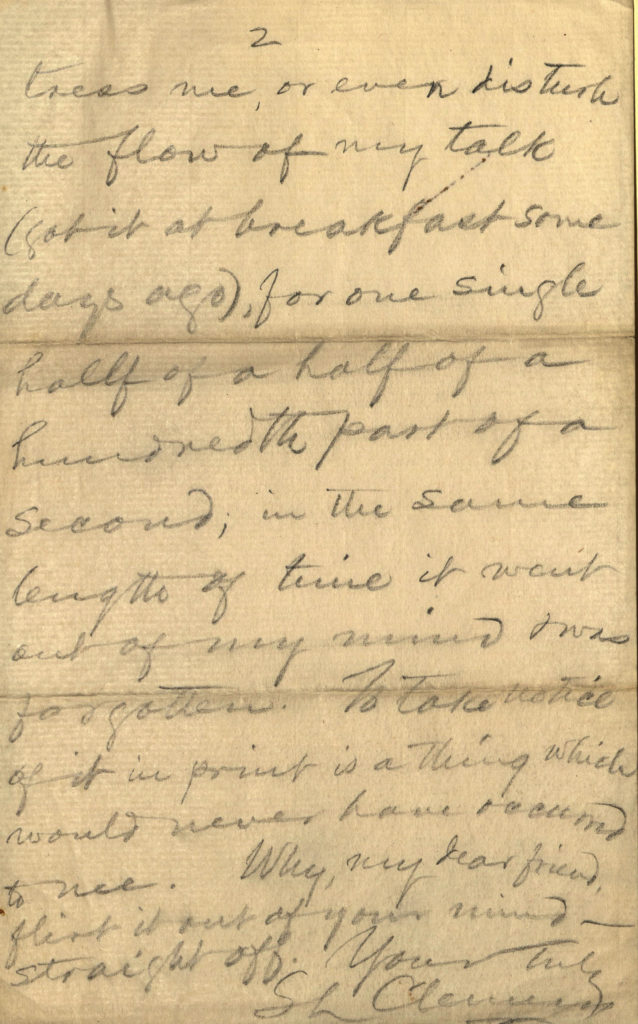 2
tress me, or even disturb
the flow of my talk
(got it at breakfast some
days ago), for one single
half of a half of a
hundredth part of a
second; in the same
length of time it went
out of my mind & was
forgotten. To take notice
of it in print is a thing which
would never have occurred
to me. Why, my dear friend,
flirt it out of your mind—
straight off. Yours truly
S L Clemens